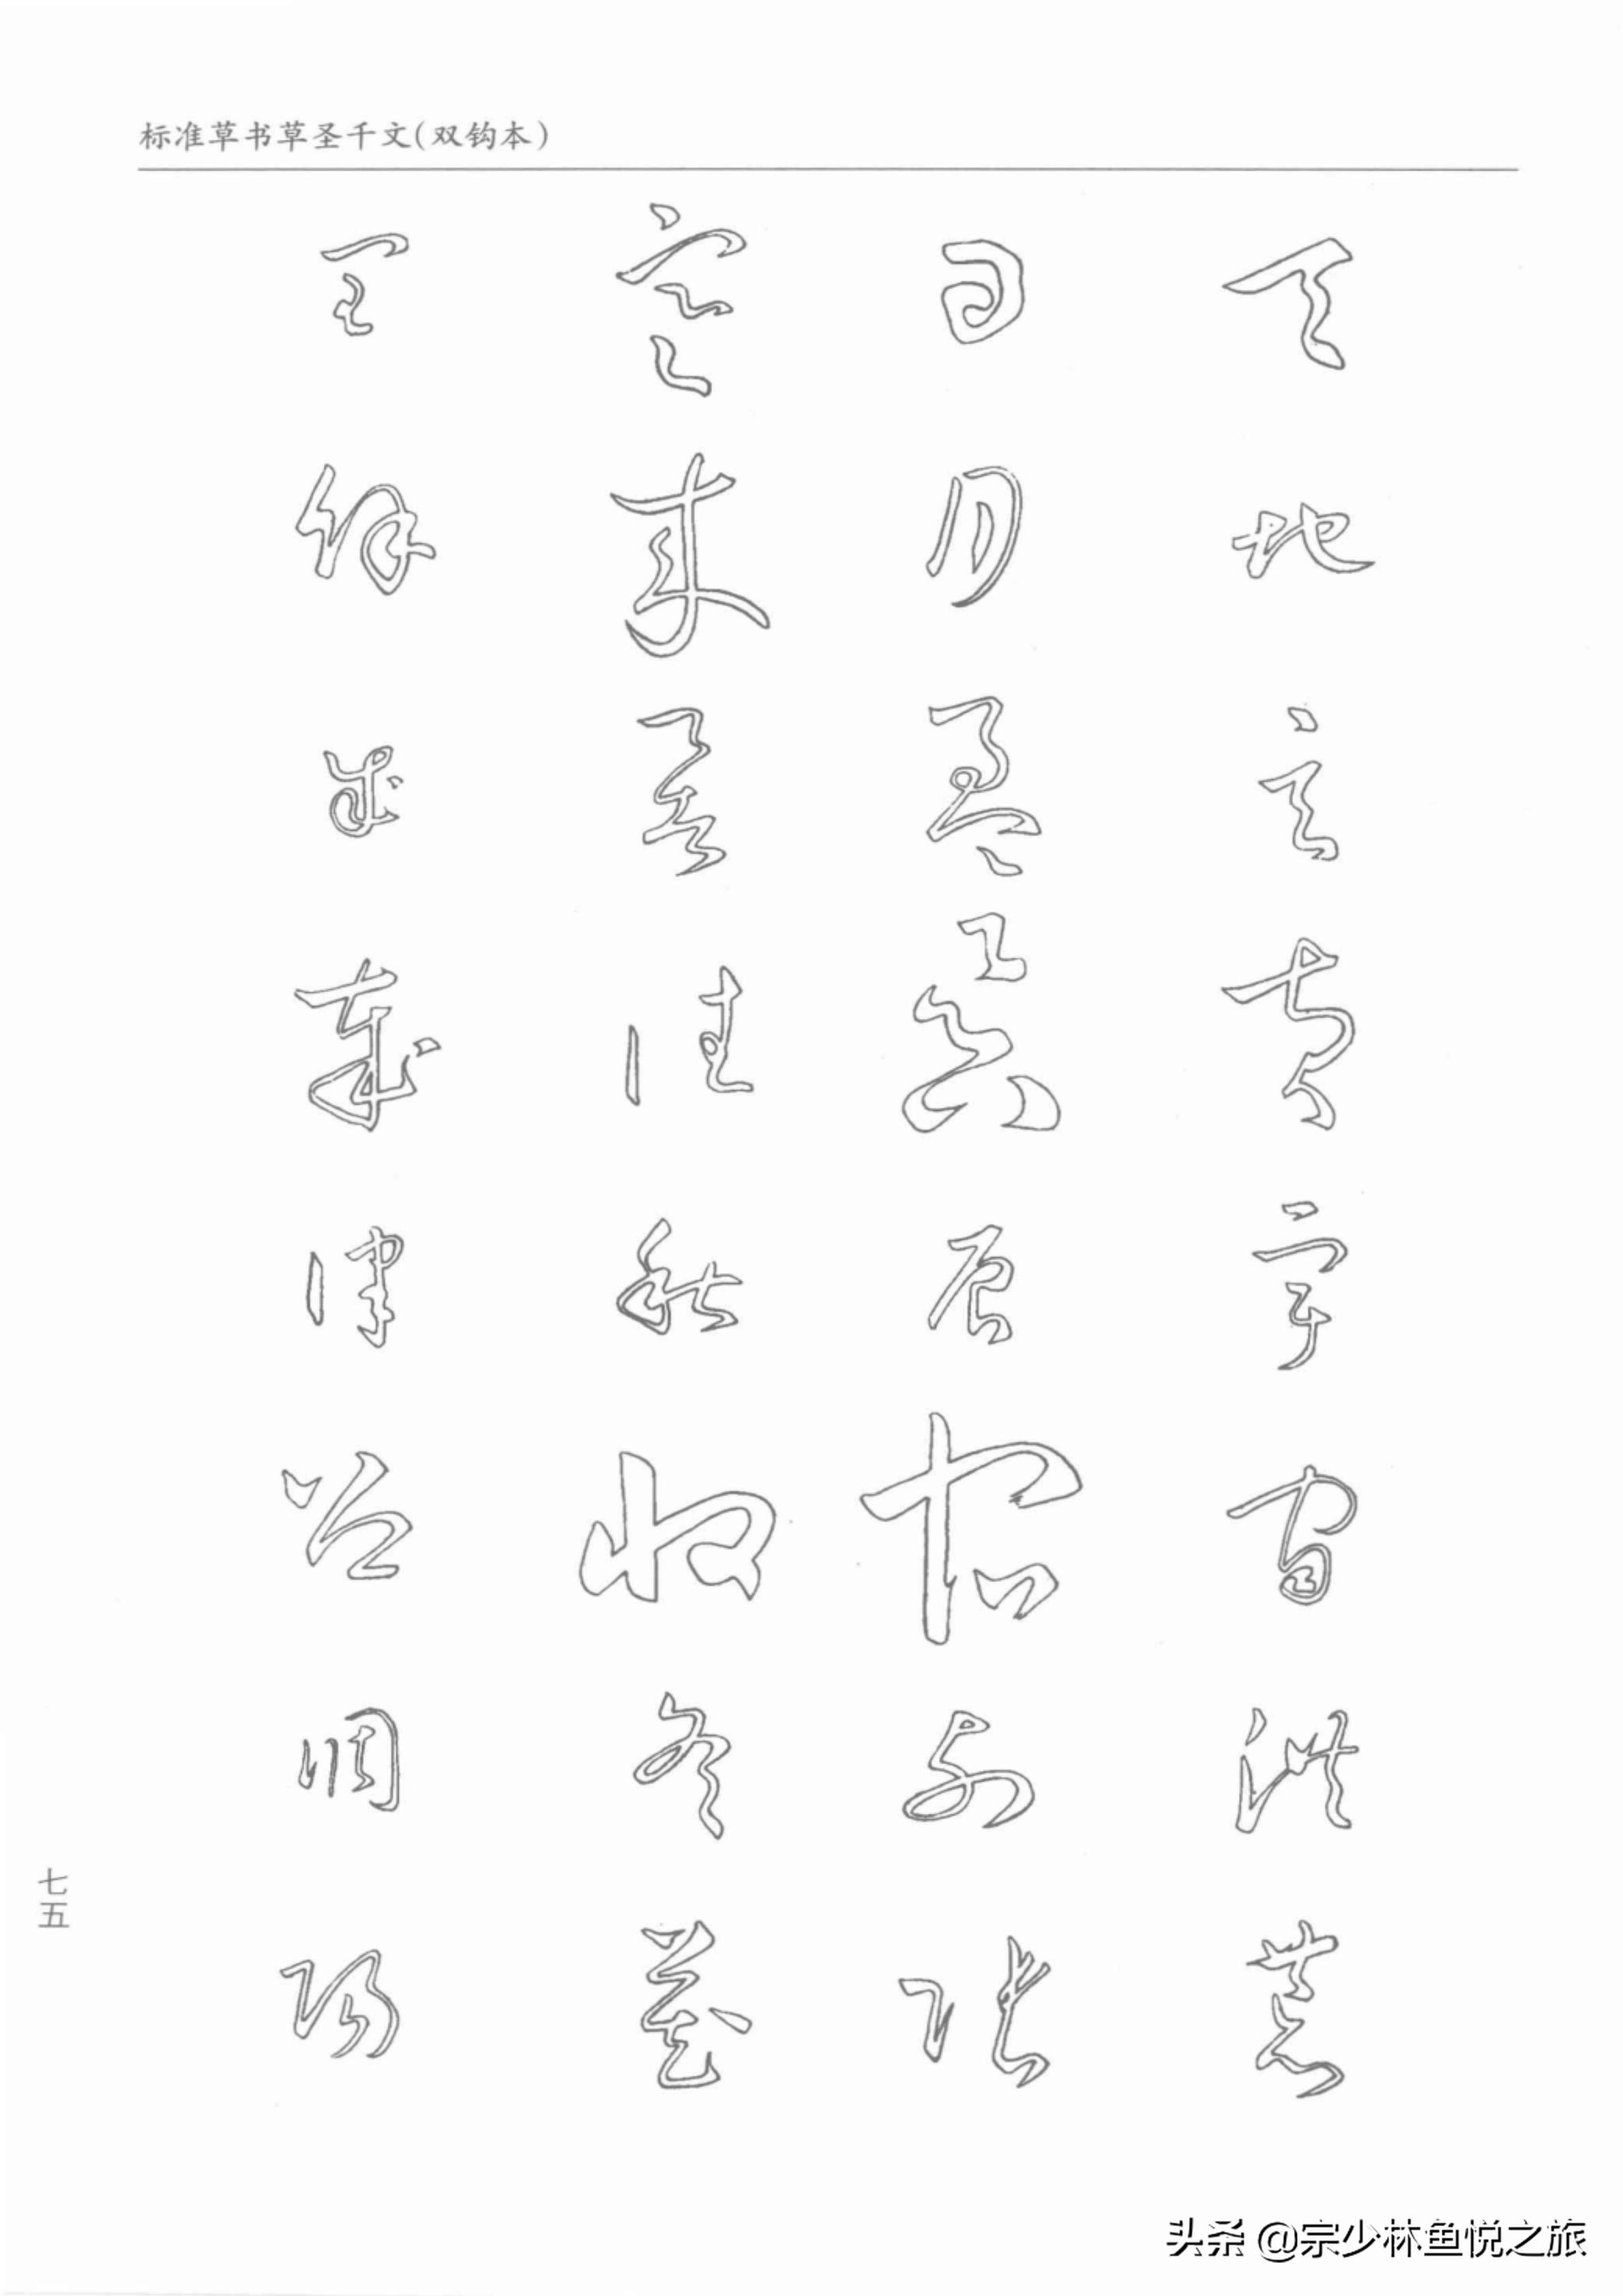 标准草书草圣千文(双钩本)
天地玄黄宇宙洪荒
日月盈昃辰宿列张
寒来暑往秋收冬藏
闰余成岁律吕调阳
七五
头条 @宗少林鱼悦之旅